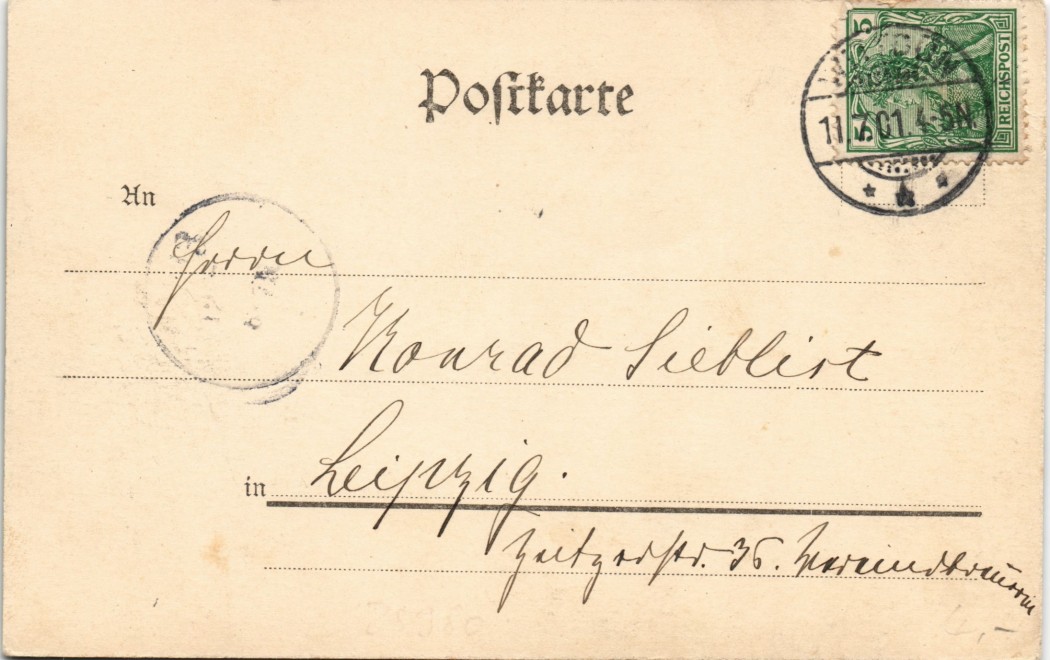 5
REICHSPOST
Postkarte
11.7.01. 4-5N.
An
Herrn
Konrad Sieblist
in Leipzig.
Zeitzerstr. 36. Vereinsbrauerei